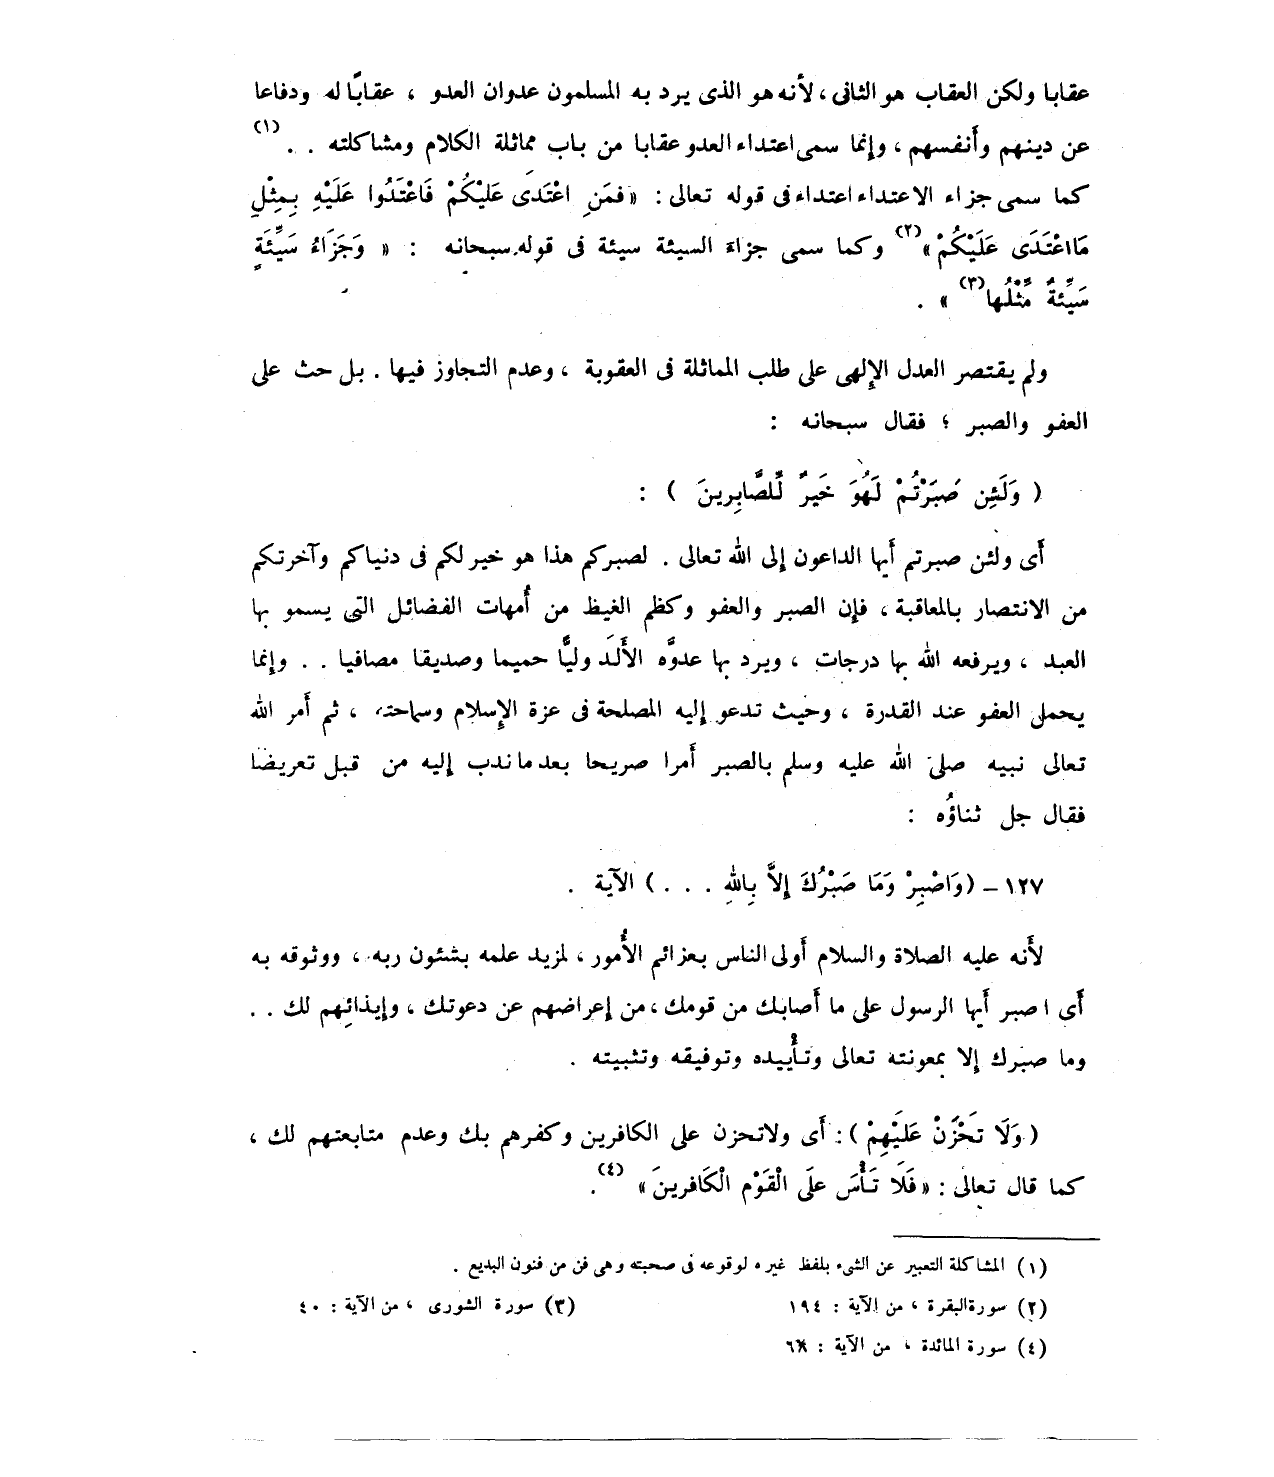 عقابا ولكن العقاب هو الثانى ، لأنه هو الذى يرد به المسلمون عدوان العدو ، عقابًا له ودفاعا
عن دينهم وأنفسهم ، وإنما سمى اعتداء العدو عقابا من باب مماثلة الكلام ومشاكلته . . (١)
كما سمى جزاء الاعتداء اعتداء فى قوله تعالى : « فمَنِ اعْتَدَى عَلَيْكُمْ فَاعْتَدُوا عَلَيْهِ بِمِثْلِ
مَا اعْتَدَى عَلَيْكُمْ » (٢) وكما سمى جزاء السيئة سيئة فى قوله سبحانه : « وَجَزَاءُ سَيِّئَةٍ
سَيِّئةٌ مِّثْلُها (٣) » .
ولم يقتصر العدل الإلهى على طلب المماثلة فى العقوبة ، وعدم التجاوز فيها . بل حث على
العفو والصبر ؛ فقال سبحانه :
( وَلَئِن صَبَرْتُمْ لَهُوَ خَيرٌ لِّلصَّابِرينَ ) :
أى ولئن صبرتم أيها الداعون إلى الله تعالى . لصبركم هذا هو خير لكم فى دنياكم وآخرتكم
من الانتصار بالمعاقبة ، فإن الصبر والعفو وكظم الغيظ من أُمهات الفضائل التى يسمو بها
العبد ، ويرفعه الله بها درجات ، ويرد بها عدوَّه الألَد وليًّا حميما وصديقا مصافيا . . وإنما
يحمل العفو عند القدرة ، وحيث تدعو إليه المصلحة فى عزة الإسلام وسماحته ، ثم أمر الله
تعالى نبيه صلى الله عليه وسلم بالصبر أمرا صريحا بعد ما ندب إليه من قبل تعريضا
فقال جل ثناؤُه :
١٢٧ – (وَاصْبِرْ وَمَا صَبْرُكَ إِلاَّ بِاللهِ . . . ) الآية .
لأنه عليه الصلاة والسلام أولى الناس بعزائم الأُمور ، لمزيد علمه بشئون ربه ، ووثوقه به
أى اصبر أيها الرسول على ما أصابك من قومك ، من إعراضهم عن دعوتك ، وإيذائِهم لك . .
وما صبرك إلا بمعونته تعالى وتأْييده وتوفيقه وتثبيته .
( وَلَا تَحْزَنْ عَلَيْهِمْ ) : أى ولاتحزن على الكافرين وكفرهم بك وعدم متابعتهم لك ،
كما قال تعالى : « فَلَا تَأْسَ علَى الْقَوْمِ الْكَافرينَ » (٤) .
(١) المشاكلة التعبير عن الشىء بلفظ غيره لوقوعه فى صحبته وهى فن من فنون البديع .
(٢) سورة البقرة ، من الآية : ١٩٤ (٣) سورة الشورى ، من الآية : ٤٠
(٤) سورة المائدة ، من الآية : ٦٨